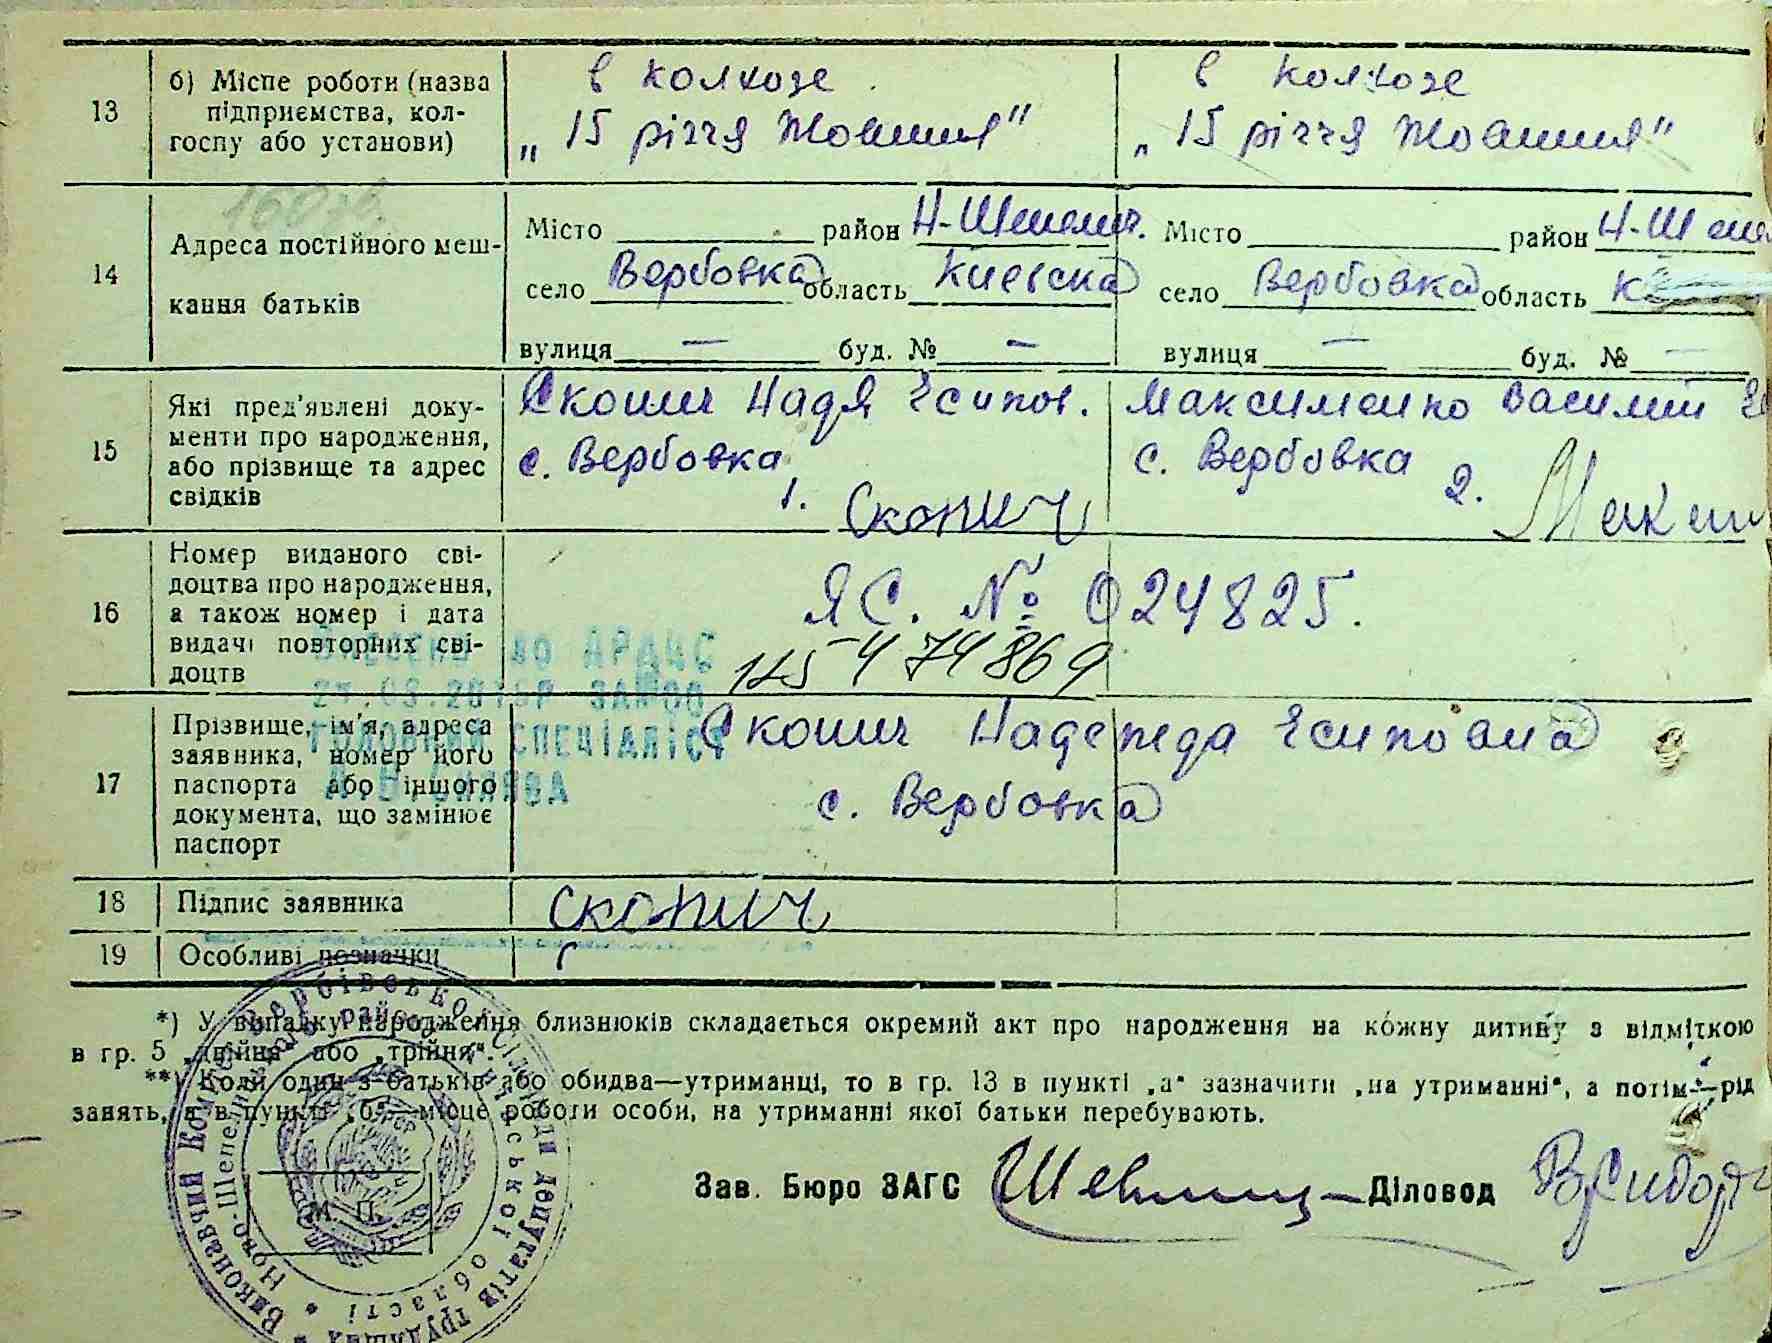 13 б) Місце роботи (назва підприємства, колгоспу або установи)
в колхозе
„15 річчя Жовтня"
в колхозе
„15 річчя Жовтня"
14 Адреса постійного мешкання батьків
160
Місто район Н-Шепелич.
село Вербовка область Киевска
вулиця — буд. № —
Місто район Н-Шепе
село Вербовка область К
вулиця — буд. № —
15 Які пред'явлені документи про народження, або прізвище та адрес свідків
Скопич Надя Есипов.
с. Вербовка
1. Скопич
Максименко Василий
с. Вербовка
2.
16 Номер виданого свідоцтва про народження, а також номер і дата видачі повторних свідоцтв
ЯС. № 024825.
474869
17 Прізвище, ім'я, адреса заявника, номер його паспорта або іншого документа, що замінює паспорт
Скопич Надежда Есиповна
с. Вербовка
Внесено до АРАЦС
ГОЛОВНИЙ СПЕЦІАЛІСТ
18 Підпис заявника
Скопич
19 Особливі позначки
*) У випадку народження близнюків складається окремий акт про народження на кожну дитину з відміткою
в гр. 5 „двійня" або „трійня".
**) Коли один з батьків або обидва—утриманці, то в гр. 13 в пункті „а" зазначити „на утриманні", а потім—рід
занять, а в пункті „б"—місце роботи особи, на утриманні якої батьки перебувають.
Зав. Бюро ЗАГС
Діловод
М. П.
Виконавчий Комітет Вербівської сільської Ради депутатів трудящих
Ново-Шепелицького району Київської області